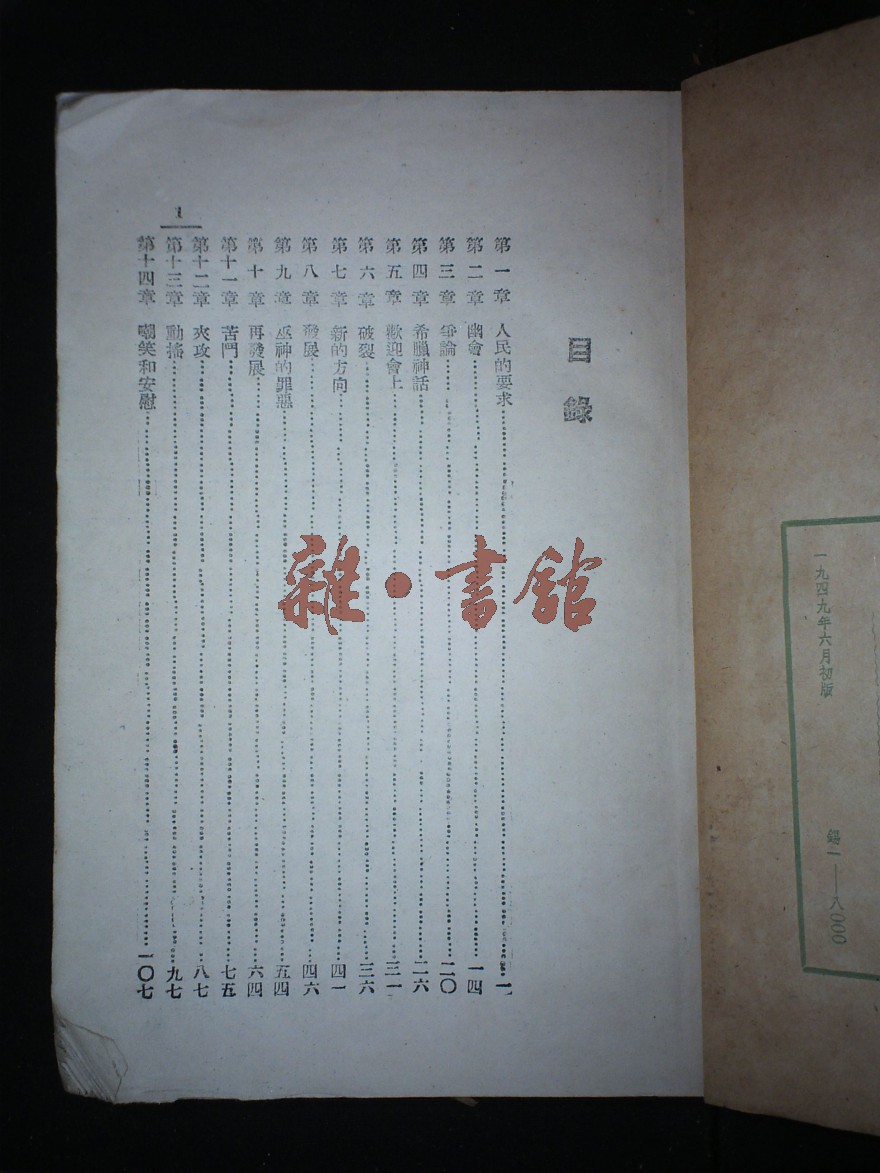 一九四九年六月初版
錫一——八〇〇〇
目錄
第一章 人民的要求……一
第二章 幽會……一四
第三章 爭論……二〇
第四章 希臘神話……二六
第五章 歡迎會上……三一
第六章 破裂……三六
第七章 新的方向……四一
第八章 發展……四六
第九章 巫神的罪惡……五四
第十章 再發展……六四
第十一章 苦鬥……七五
第十二章 夾攻……八七
第十三章 動搖……九七
第十四章 嘲笑和安慰……一〇七
1
雜·書館